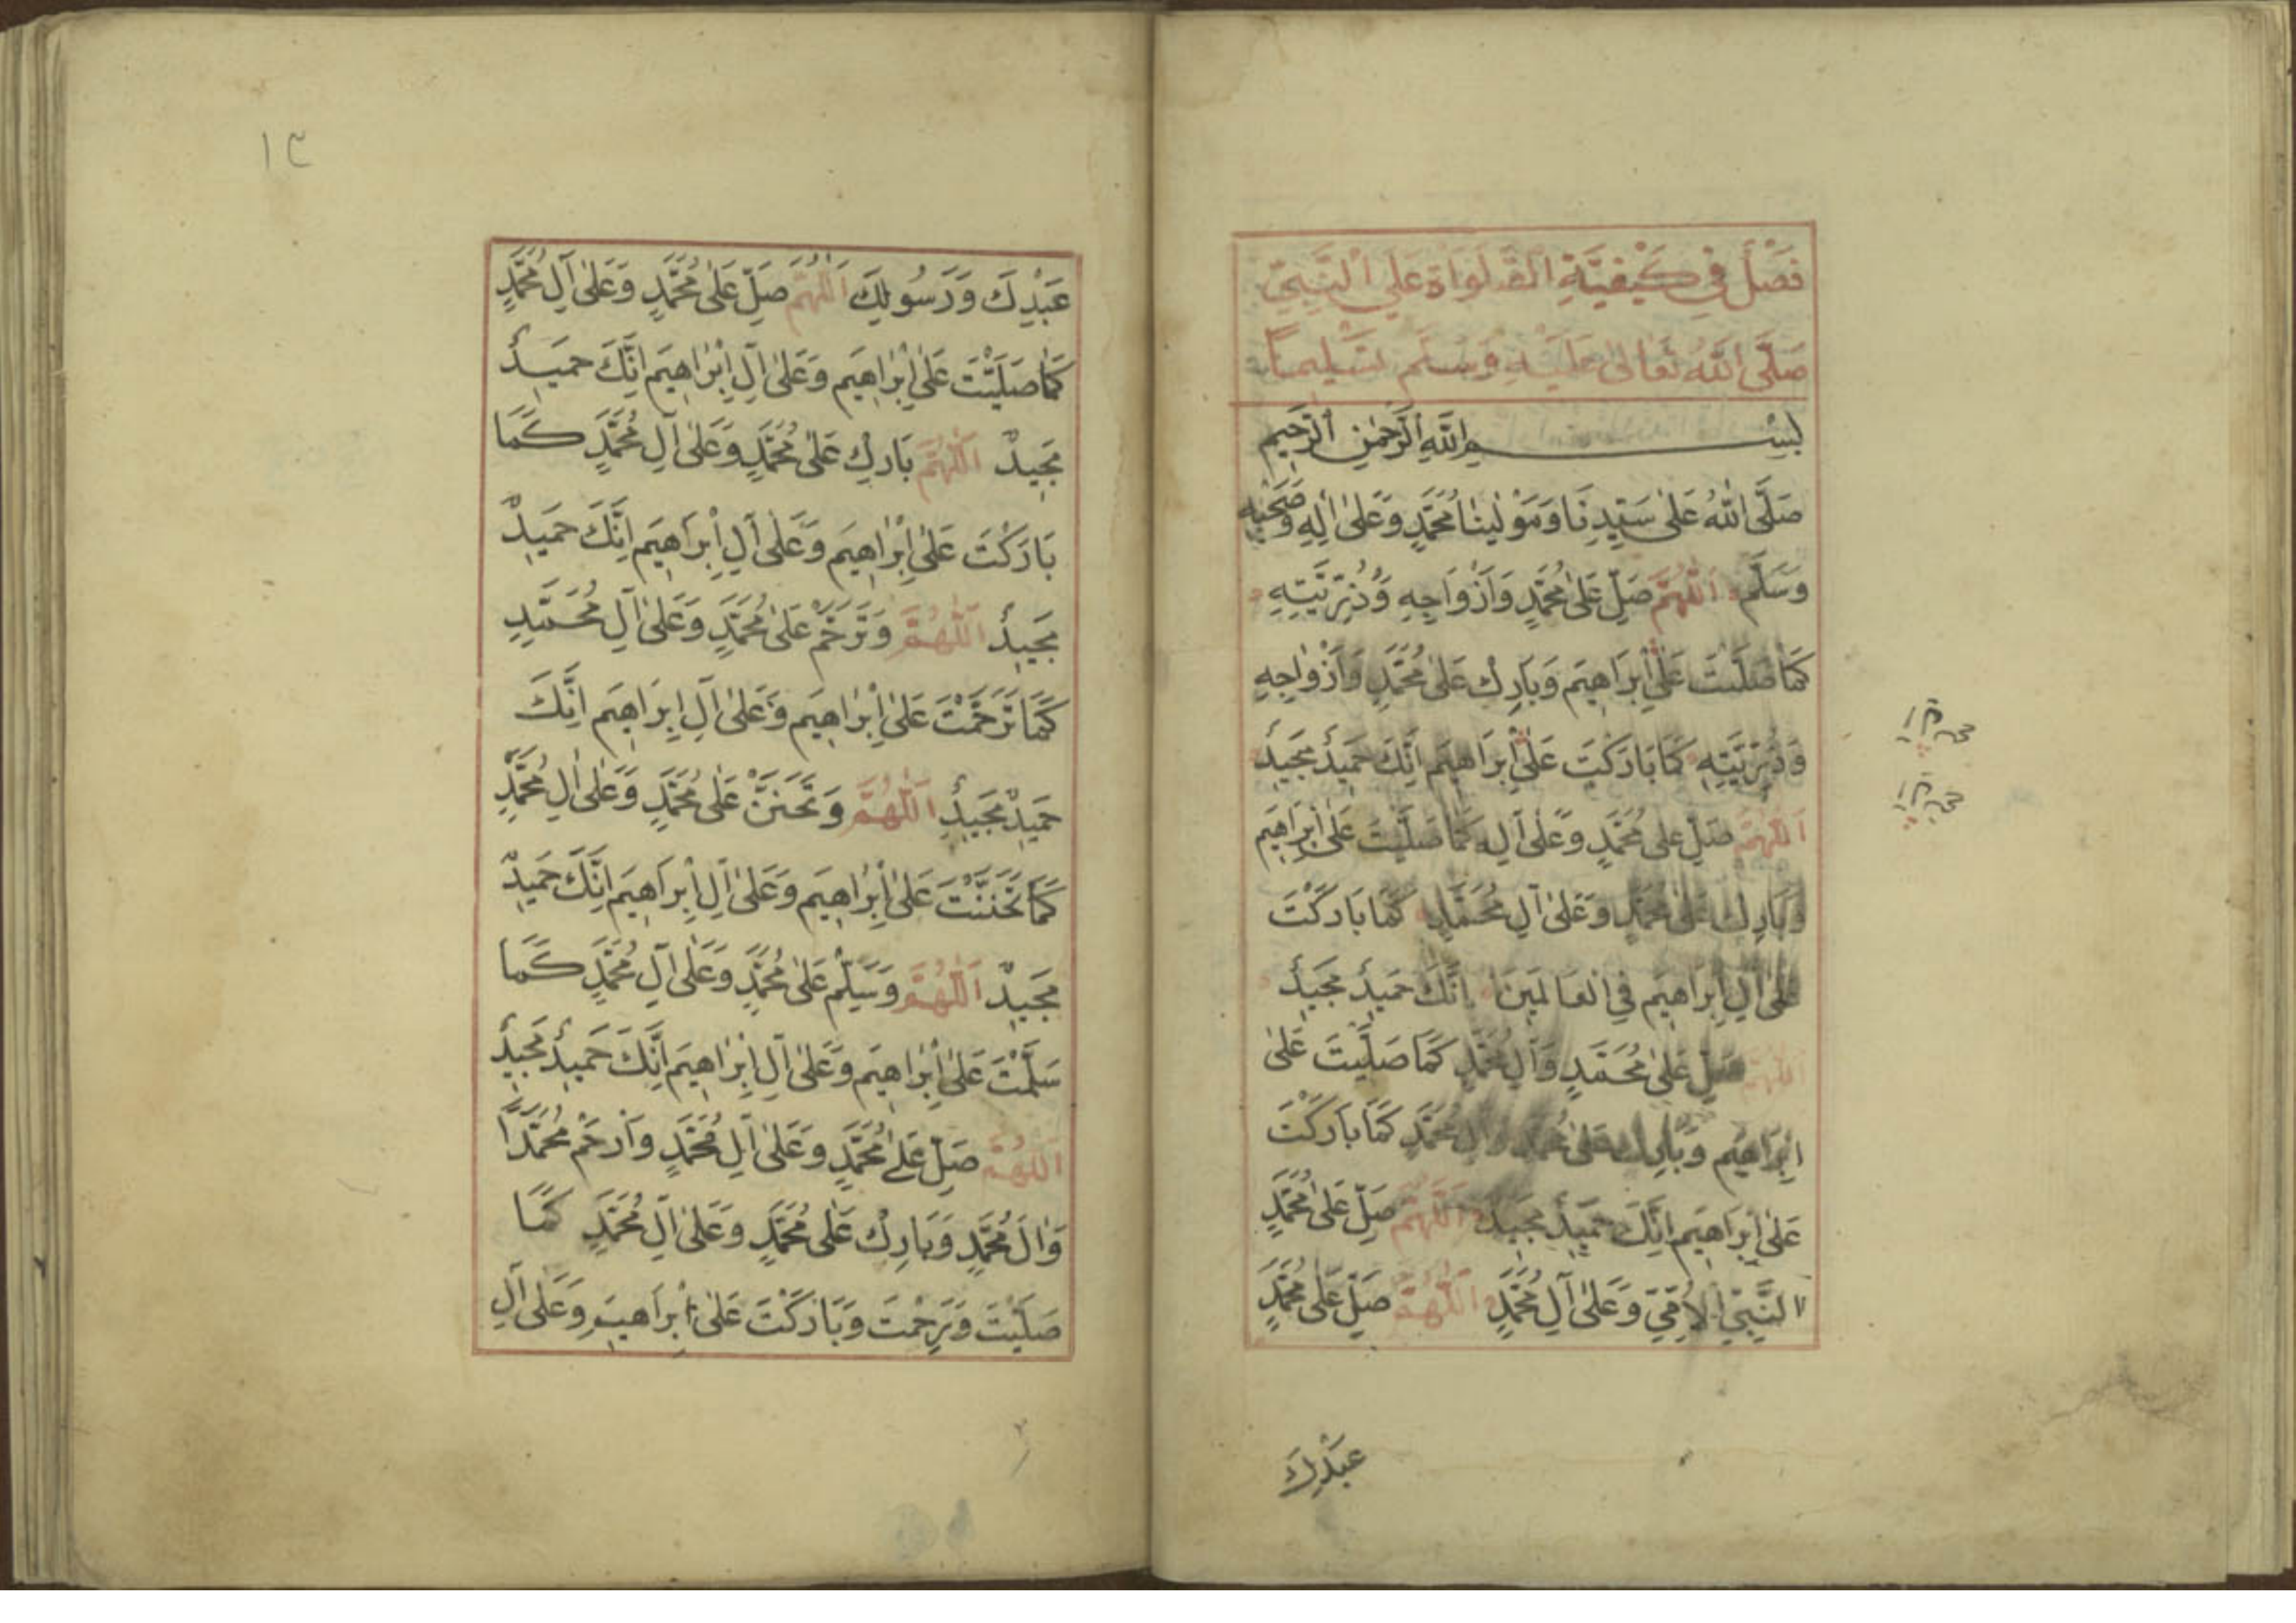 فَصْلٌ فِي كَيْفِيَّةِ الصَّلَوَاةِ عَلَى النَّبِيِّ
صَلَّى اللَّهُ تَعَالَى عَلَيْهِ وَسَلَّمَ تَسْلِيمًا
بِسْمِ اللَّهِ الرَّحْمٰنِ الرَّحِيمِ
صَلَّى اللَّهُ عَلَى سَيِّدِنَا وَمَوْلٰينَا مُحَمَّدٍ وَعَلَى اٰلِهِ وَصَحْبِهِ
وَسَلَّمَ اَللّٰهُمَّ صَلِّ عَلَى مُحَمَّدٍ وَاَزْوَاجِهِ وَذُرِّيَّتِهِ
كَمَا صَلَّيْتَ عَلَى اِبْرَاهِيمَ وَبَارِكْ عَلَى مُحَمَّدٍ وَاَزْوَاجِهِ
وَذُرِّيَّتِهِ كَمَا بَارَكْتَ عَلَى اِبْرَاهِيمَ اِنَّكَ حَمِيدٌ مَجِيدٌ
اَللّٰهُمَّ صَلِّ عَلَى مُحَمَّدٍ وَعَلَى اٰلِهِ كَمَا صَلَّيْتَ عَلَى اِبْرَاهِيمَ
وَبَارِكْ عَلَى مُحَمَّدٍ وَعَلَى اٰلِ مُحَمَّدٍ كَمَا بَارَكْتَ
عَلَى اٰلِ اِبْرَاهِيمَ فِي الْعَالَمِينَ اِنَّكَ حَمِيدٌ مَجِيدٌ
اَللّٰهُمَّ صَلِّ عَلَى مُحَمَّدٍ وَاٰلِ مُحَمَّدٍ كَمَا صَلَّيْتَ عَلَى
اِبْرَاهِيمَ وَبَارِكْ عَلَى مُحَمَّدٍ وَاٰلِ مُحَمَّدٍ كَمَا بَارَكْتَ
عَلَى اِبْرَاهِيمَ اِنَّكَ حَمِيدٌ مَجِيدٌ اَللّٰهُمَّ صَلِّ عَلَى مُحَمَّدٍ
النَّبِيِّ الْاُمِّيِّ وَعَلَى اٰلِ مُحَمَّدٍ اَللّٰهُمَّ صَلِّ عَلَى مُحَمَّدٍ
عَبْدِكَ
١٣
عَبْدِكَ وَرَسُولِكَ اَللّٰهُمَّ صَلِّ عَلَى مُحَمَّدٍ وَعَلَى اٰلِ مُحَمَّدٍ
كَمَا صَلَّيْتَ عَلَى اِبْرَاهِيمَ وَعَلَى اٰلِ اِبْرَاهِيمَ اِنَّكَ حَمِيدٌ
مَجِيدٌ اَللّٰهُمَّ بَارِكْ عَلَى مُحَمَّدٍ وَعَلَى اٰلِ مُحَمَّدٍ كَمَا
بَارَكْتَ عَلَى اِبْرَاهِيمَ وَعَلَى اٰلِ اِبْرَاهِيمَ اِنَّكَ حَمِيدٌ
مَجِيدٌ اَللّٰهُمَّ وَتَرَحَّمْ عَلَى مُحَمَّدٍ وَعَلَى اٰلِ مُحَمَّدٍ
كَمَا تَرَحَّمْتَ عَلَى اِبْرَاهِيمَ وَعَلَى اٰلِ اِبْرَاهِيمَ اِنَّكَ
حَمِيدٌ مَجِيدٌ اَللّٰهُمَّ وَتَحَنَّنْ عَلَى مُحَمَّدٍ وَعَلَى اٰلِ مُحَمَّدٍ
كَمَا تَحَنَّنْتَ عَلَى اِبْرَاهِيمَ وَعَلَى اٰلِ اِبْرَاهِيمَ اِنَّكَ حَمِيدٌ
مَجِيدٌ اَللّٰهُمَّ وَسَلِّمْ عَلَى مُحَمَّدٍ وَعَلَى اٰلِ مُحَمَّدٍ كَمَا
سَلَّمْتَ عَلَى اِبْرَاهِيمَ وَعَلَى اٰلِ اِبْرَاهِيمَ اِنَّكَ حَمِيدٌ مَجِيدٌ
اَللّٰهُمَّ صَلِّ عَلَى مُحَمَّدٍ وَعَلَى اٰلِ مُحَمَّدٍ وَاَرْحَمْ مُحَمَّدًا
وَاٰلَ مُحَمَّدٍ وَبَارِكْ عَلَى مُحَمَّدٍ وَعَلَى اٰلِ مُحَمَّدٍ كَمَا
صَلَّيْتَ وَرَحِمْتَ وَبَارَكْتَ عَلَى اِبْرَاهِيمَ وَعَلَى اٰلِ